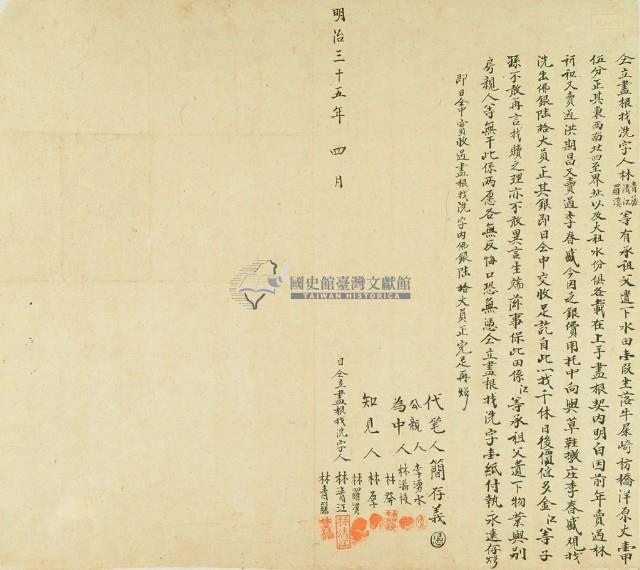 仝立盡根找洗字人林青藤清江羅漢等有承祖父遺下水田壹段坐落牛屎崎枋橋洋原丈壹甲
伍分正其東西南北四至界址以及大租水份俱各載在上手盡根契內明白因前年賣過林
祈和又賣過洪期昌又賣過李春盛今因乏銀費用托中向與草鞋墩庄李春盛觀找
洗出佛銀陸拾大員正其銀即日仝中交收足訖自此一找千休日後價值多金江等子
孫不敢再言找贖之理亦不敢異言生端滋事保此田係江等承祖父遺下物業與別
房親人等無干此係兩愿各無反悔口恐無憑仝立盡根找洗字壹紙付執永遠存炤
即日仝中實收過盡根找洗字內佛銀陸拾大員正完足再炤
代笔人簡存義
公親人李湧水
為中人林滿枝
林發
知見人林厚
林羅漢
日仝立盡根找洗字人林清江
林青藤
明治三十五年四月
國史館臺灣文獻館
TAIWAN HISTORICA